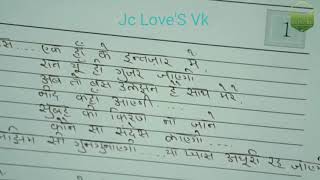 Jc Love'S Vk
1
एक हाँ के इन्तजार में,
रात यूँ ही गुजर जाएगी
अब तो बस उलझन है साथ मेरे
नींद कहाँ आएगी....
सुबह की किरण ना जाने
कौन सा संदेश लाएगी....
सी गुनगुनाएगी ....या प्यास अधूरी रह जाएगी